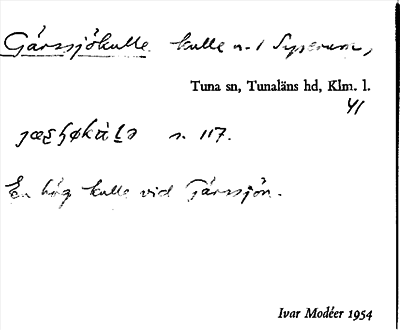 Gårssjökulle kulle n. I
Tuna sn, Tunaläns hd, Klm. l.
41
s. 117.
En hög kulle vid Gårssjön.
Ivar Modéer 1954